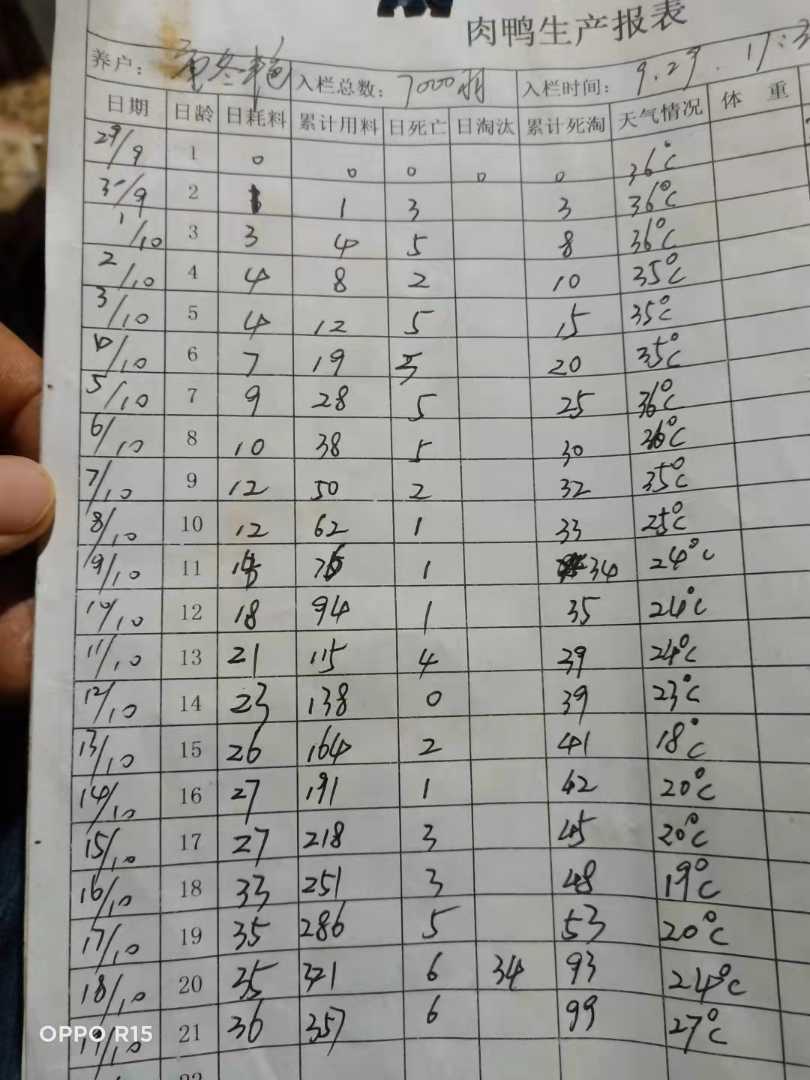 肉鸭生产报表
养户: 入栏总数: 7000羽 入栏时间: 9.29.17:3
日期 日龄 日耗料 累计用料 日死亡 日淘汰 累计死淘 天气情况 体 重
29/9 1 0 0 0 0 0 36℃
30/9 2 1 1 3 3 36℃
1/10 3 3 4 5 8 36℃
2/10 4 4 8 2 10 35℃
3/10 5 4 12 5 15 35℃
4/10 6 7 19 5 20 35℃
5/10 7 9 28 5 25 36℃
6/10 8 10 38 5 30 36℃
7/10 9 12 50 2 32 35℃
8/10 10 12 62 1 33 25℃
9/10 11 1 34 24℃
10/10 12 18 94 1 35 24℃
11/10 13 21 115 4 39 24℃
12/10 14 23 138 0 39 23℃
13/10 15 26 164 2 41 18℃
14/10 16 27 191 1 42 20℃
15/10 17 27 218 3 45 20℃
16/10 18 33 251 3 48 19℃
17/10 19 35 286 5 53 20℃
18/10 20 35 321 6 34 93 24℃
19/10 21 36 357 6 99 27℃
OPPO R15